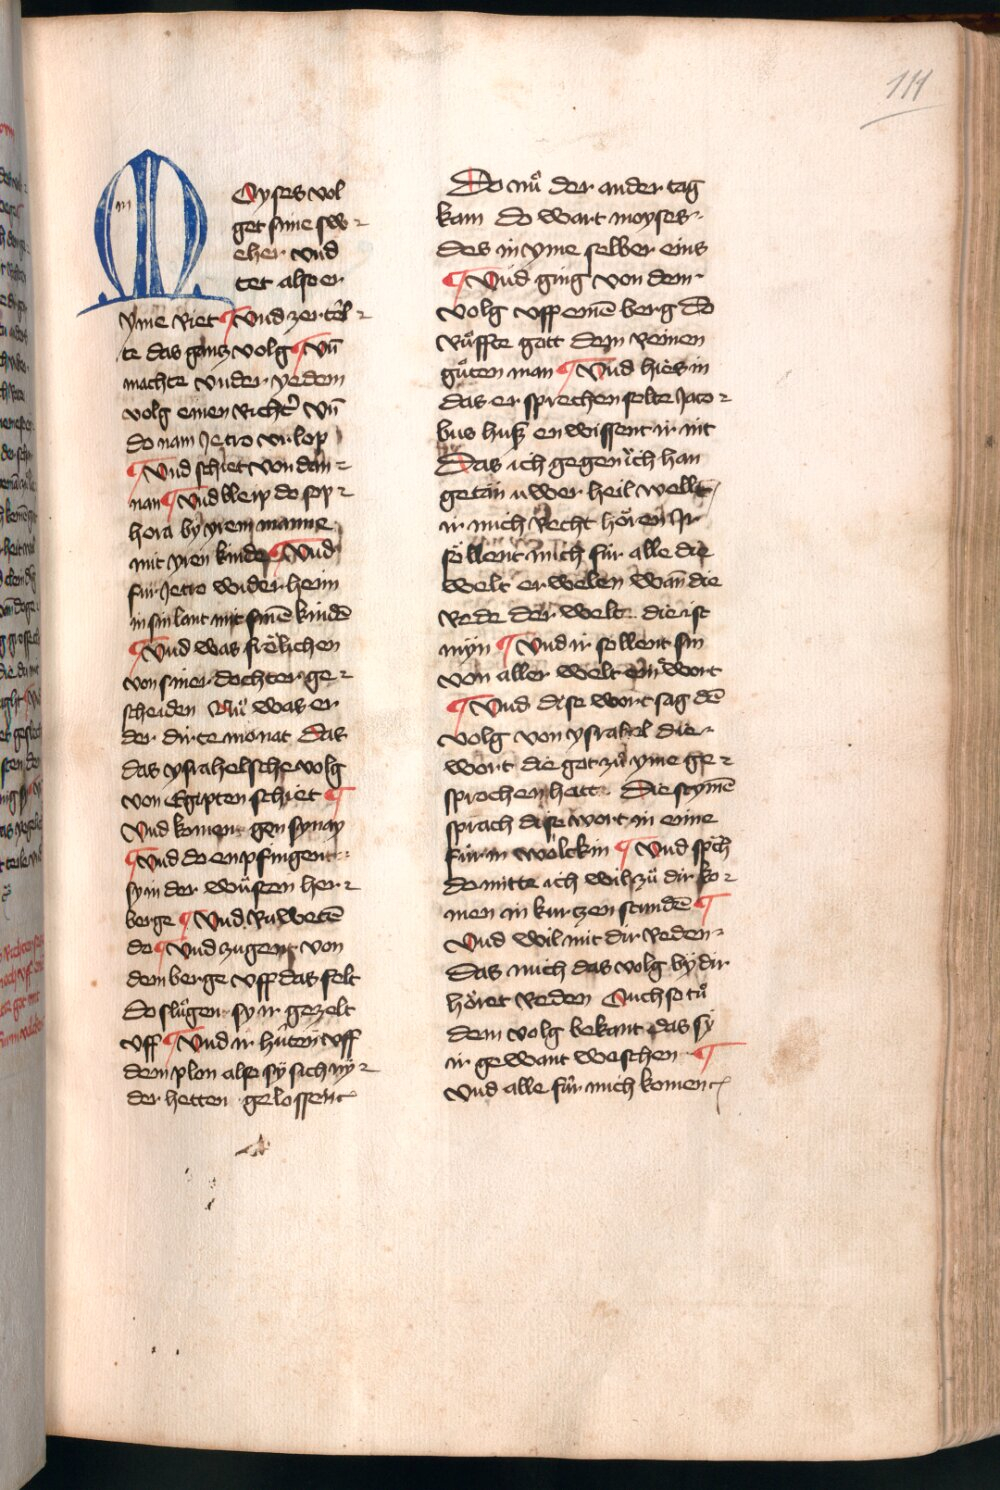 111
Moyses vol
get sime sw-
eher vnd
tet also er
yme riet ¶ Vnd zerteͤl-
te das gantz volg ¶ Vn̄
machte vnder yedem
volg einen richt͛ vn̄
do nam Jetro vrlop
¶ Vnd schiet von dan-
nan ¶ Vnd bleip do sop-
hora by yrem manne
mit yren kinder ¶ Vnd
fuͤr Jetro wider heim
in sin lant mit sinē kindē
¶ Vnd was froͤlichen
von siner dochter ge-
scheiden Nuͦ was er
der dirte monat Das
das ysrahelsche volg
von Egipten schiet ¶
Vnd komen gen synay
¶ Vnd do enpfingent
sy in der wuͤsten her-
berge ¶ Vnd ruwetē
do ¶ Vnd zugent von
dem berge vff das felt
Do sluͦgen sy ir gezelt
vff ¶ Vnd ir huͤten vff
dem plon also sÿ sich nÿ-
der hetten gelossent
Do nuͦ der ander tag
kam do wart moyses
des in yme selber eins
¶ Vnd ging von dem
volg vff einē berg do
ruͦffte gott dem reinen
guͦten man ¶ Vnd hies in
das er sprechen solte Jaco-
bus huß en wissent ir nit
Das ich gegen uͤch han
getan uwer heil wellt
ir mich recht hoͤren Jr
soͤllent mich fuͤr alle die
welt erwelen wan̄ die
rede der welt die ist
mÿn ¶ Vnd ir sollent sin
von aller welt ein wort
¶ Vnd dise wort sag dē
volg von ysrahel die
wort die got zuͦ yme ge-
sprochen hatt Die stymē
sprach dise wort in eime
fuͤrin wolckin ¶ Vnd sp̄ch
do mitte ich wil zuͦ dir ko-
men in kurtzen stundē ¶
Vnd wil mit dir reden
Das mich das volg bÿ dir
hoͤret reden Ouch so tuͦ
dem volg bekant das sÿ
ir gewant weschen ¶
Vnd alle fuͤr mich koment